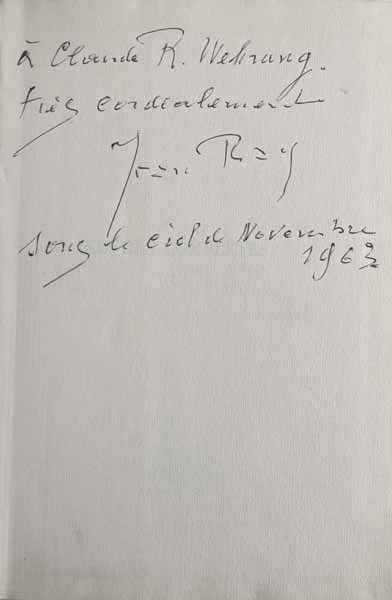 à Claude R. Wehrung.
très cordialement
Jean Ray
sous le ciel de Novembre
1963